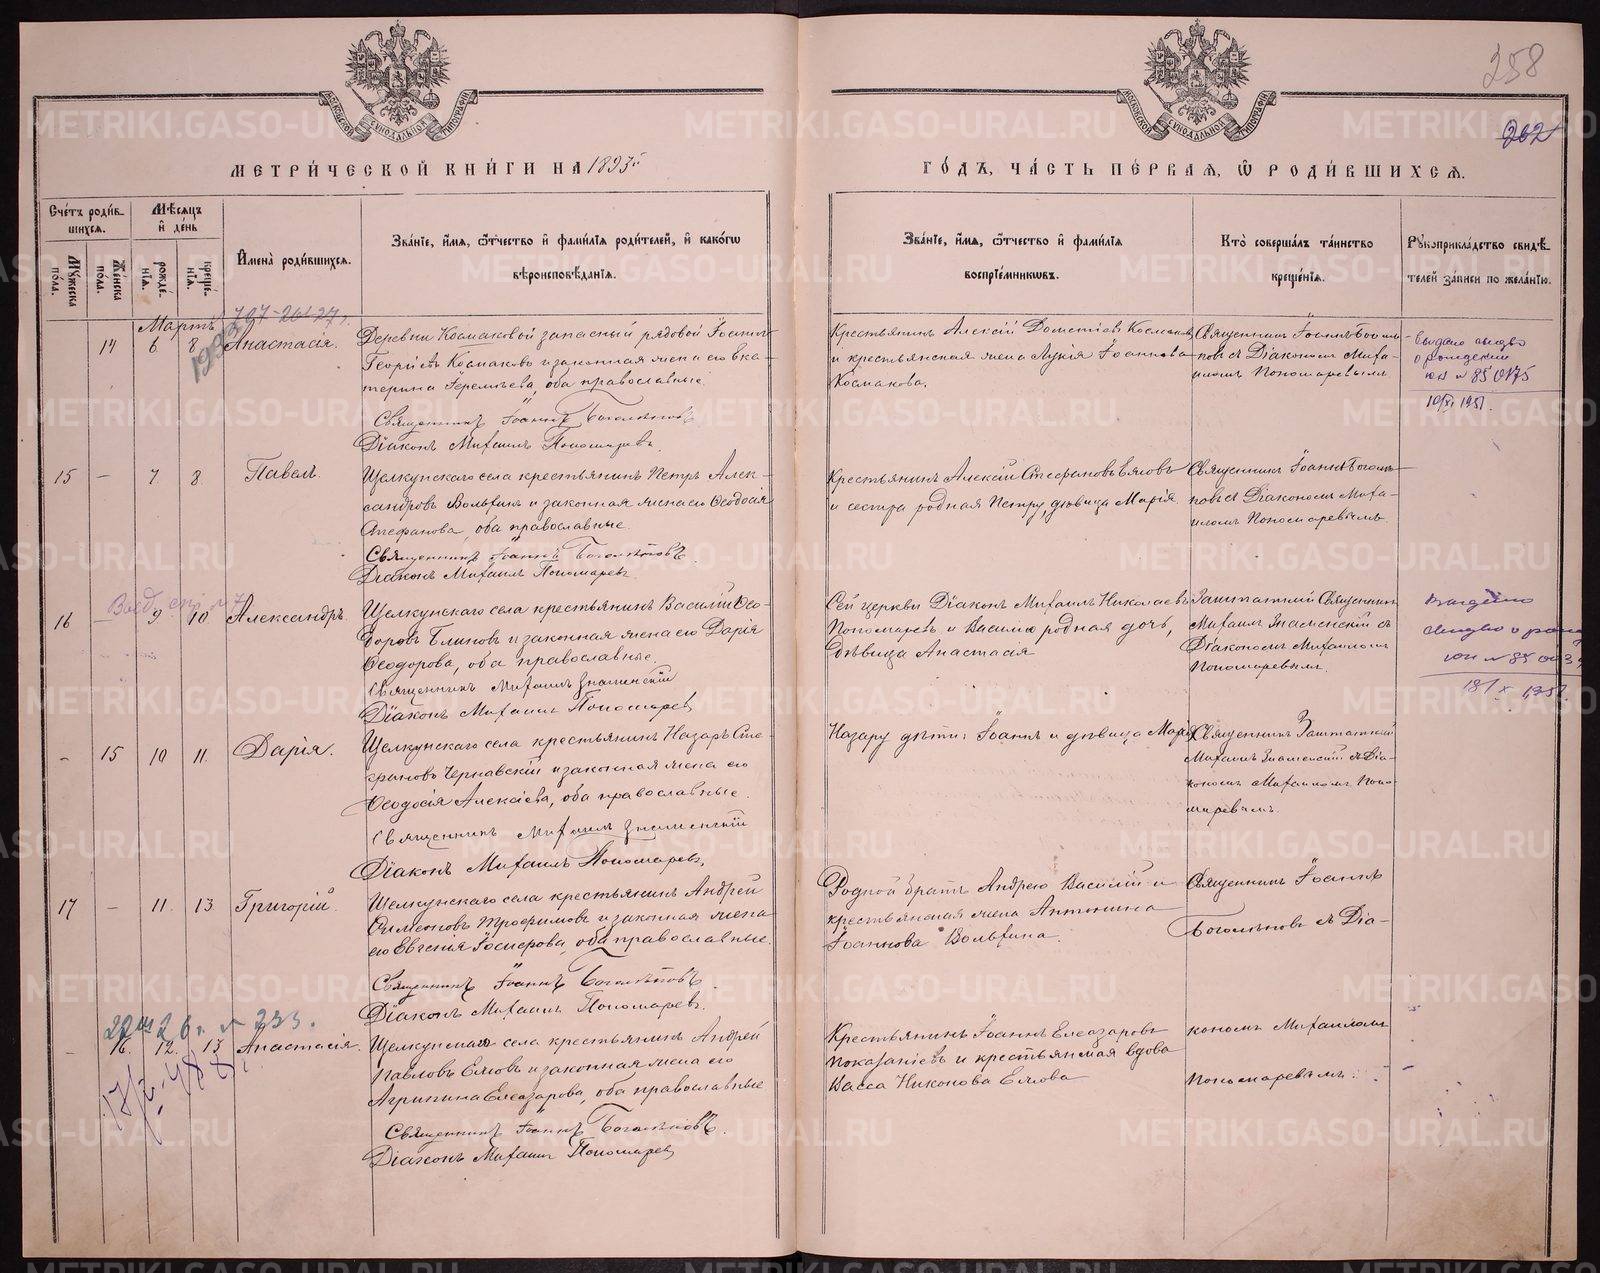 358
262
МЕТРИЧЕСКОЙ КНИГИ НА 1895
ГОДЪ, ЧАСТЬ ПЕРВАЯ, Ѿ РОДИВШИХСЯ.
Счетъ родившихся.
Мужеска пола.
Женска пола.
Мѣсяцъ и день
рожденія.
крещенія.
Имена родившихся.
Званіе, имя, отчество и фамилія родителей, и какогѡ
вѣроисповѣданія.
Званіе, имя, отчество и фамилія
воспріемниковъ.
Кто совершалъ таинство
крещенія.
Рукоприкладство свидѣ-
телей записи по желанію.
Мартъ
14 6 8 Анастасія.
Деревни Космаковой запасный рядовой Іоаннъ
Георгіевъ Космаковъ и законная жена его Ека-
терина Іереміева, оба православные.
Священникъ Іоаннъ Боголѣповъ
Діаконъ Михаилъ Пономаревъ.
Крестьянинъ Алексій Дометіевъ Космаковъ
и крестьянская жена Лукія Іоаннова
Космакова.
Священникъ Іоаннъ Боголѣ-
повъ съ Діакономъ Миха-
иломъ Пономаревымъ
Выдано свид-во
о рождении
10/XI 1951.
15 - 7 8 Павелъ.
Щелкунскаго села крестьянинъ Петръ Алек-
сандровъ Вольхинъ и законная жена его Ѳеодосія
Стефанова, оба православные.
Священникъ Іоаннъ Боголѣповъ
Діаконъ Михаилъ Пономаревъ
Крестьянинъ Алексій Стефановъ Еловъ
и сестра родная Петру, дѣвица Марія.
Священникъ Іоаннъ Боголѣ-
повъ съ Діакономъ Миха-
иломъ Пономаревымъ
16 - 9 10 Александръ.
Щелкунскаго села крестьянинъ Василій Ѳео-
доровъ Блиновъ и законная жена его Дарія
Ѳеодорова, оба православные.
Священникъ Михаилъ Знаменскій
Діаконъ Михаилъ Пономаревъ
Сей церкви Діаконъ Михаилъ Николаевъ
Пономаревъ и Василія родная дочь,
дѣвица Анастасія
Заштатный Священникъ
Михаилъ Знаменскій съ
Діакономъ Михаиломъ
Пономаревымъ.
Выдано
- 15 10 11 Дарія.
Щелкунскаго села крестьянинъ Назаръ Сте-
фановъ Чернавскій и законная жена его
Ѳеодосія Алексіева, оба православные.
Священникъ Михаилъ Знаменскій
Діаконъ Михаилъ Пономаревъ,
Назару дѣти: Іоаннъ и дѣвица Марія
Священникъ Заштатный
Михаилъ Знаменскій съ Діа-
кономъ Михаиломъ Поно-
маревымъ.
17 - 11 13 Григорій.
Щелкунскаго села крестьянинъ Андрей
Симеоновъ Трофимовъ и законная жена
его Евгенія, оба православные.
Священникъ Іоаннъ Боголѣповъ.
Діаконъ Михаилъ Пономаревъ.
Родной братъ Андрею Василій и
крестьянская жена Антонина
Іоаннова Вольхина.
Священникъ Іоаннъ
Боголѣповъ съ Діа-
16. 12. 13 Анастасія.
Щелкунскаго села крестьянинъ Андрей
Павловъ Еловъ и законная жена его
Агрипина Елеазарова, оба православные
Священникъ Іоаннъ Боголѣповъ.
Діаконъ Михаилъ Пономаревъ
Крестьянинъ Іоаннъ Елеазаровъ
и крестьянская вдова
Васса Никонова Елова
кономъ Михаиломъ
Пономаревымъ.